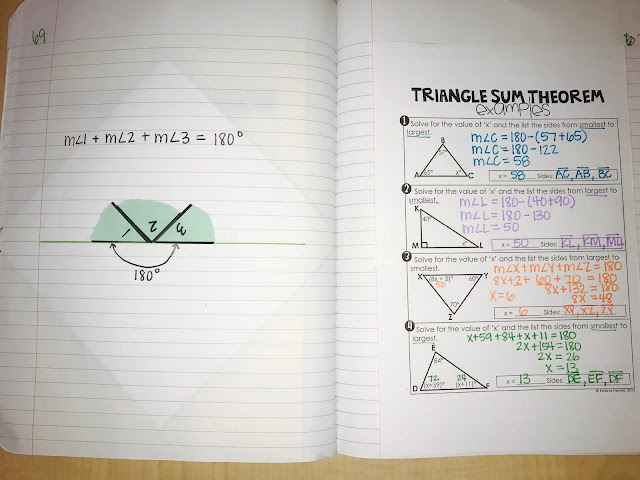 69
m∠1 + m∠2 + m∠3 = 180°
1 2 3
180°
TRIANGLE SUM THEOREM
examples
1 Solve for the value of 'x' and the list the sides from smallest to
largest.
m∠C = 180-(57+65)
m∠C = 180-122
m∠C = 58
B
57°
A 65° x° C
x = 58 Sides: AC, AB, BC
2 Solve for the value of 'x' and the list the sides from largest to
smallest.
m∠L = 180-(40+90)
m∠L = 180-130
m∠L = 50
K
40°
M x° L
x = 50 Sides: KL, KM, ML
3 Solve for the value of 'x' and the list the sides from largest to
smallest.
m∠X+m∠Y+m∠Z=180
8x+2+60+70=180
8x+132=180
8x=48
x=6
X (8x+2)° 60° Y
50
70°
Z
x = 6 Sides:
4 Solve for the value of 'x' and the list the sides from smallest to
largest.
x+59+84+x+11=180
2x+154=180
2x=26
x=13
E
84°
72 24
D (x+59)° (x+11)° F
x = 13 Sides: DE, EF, DF